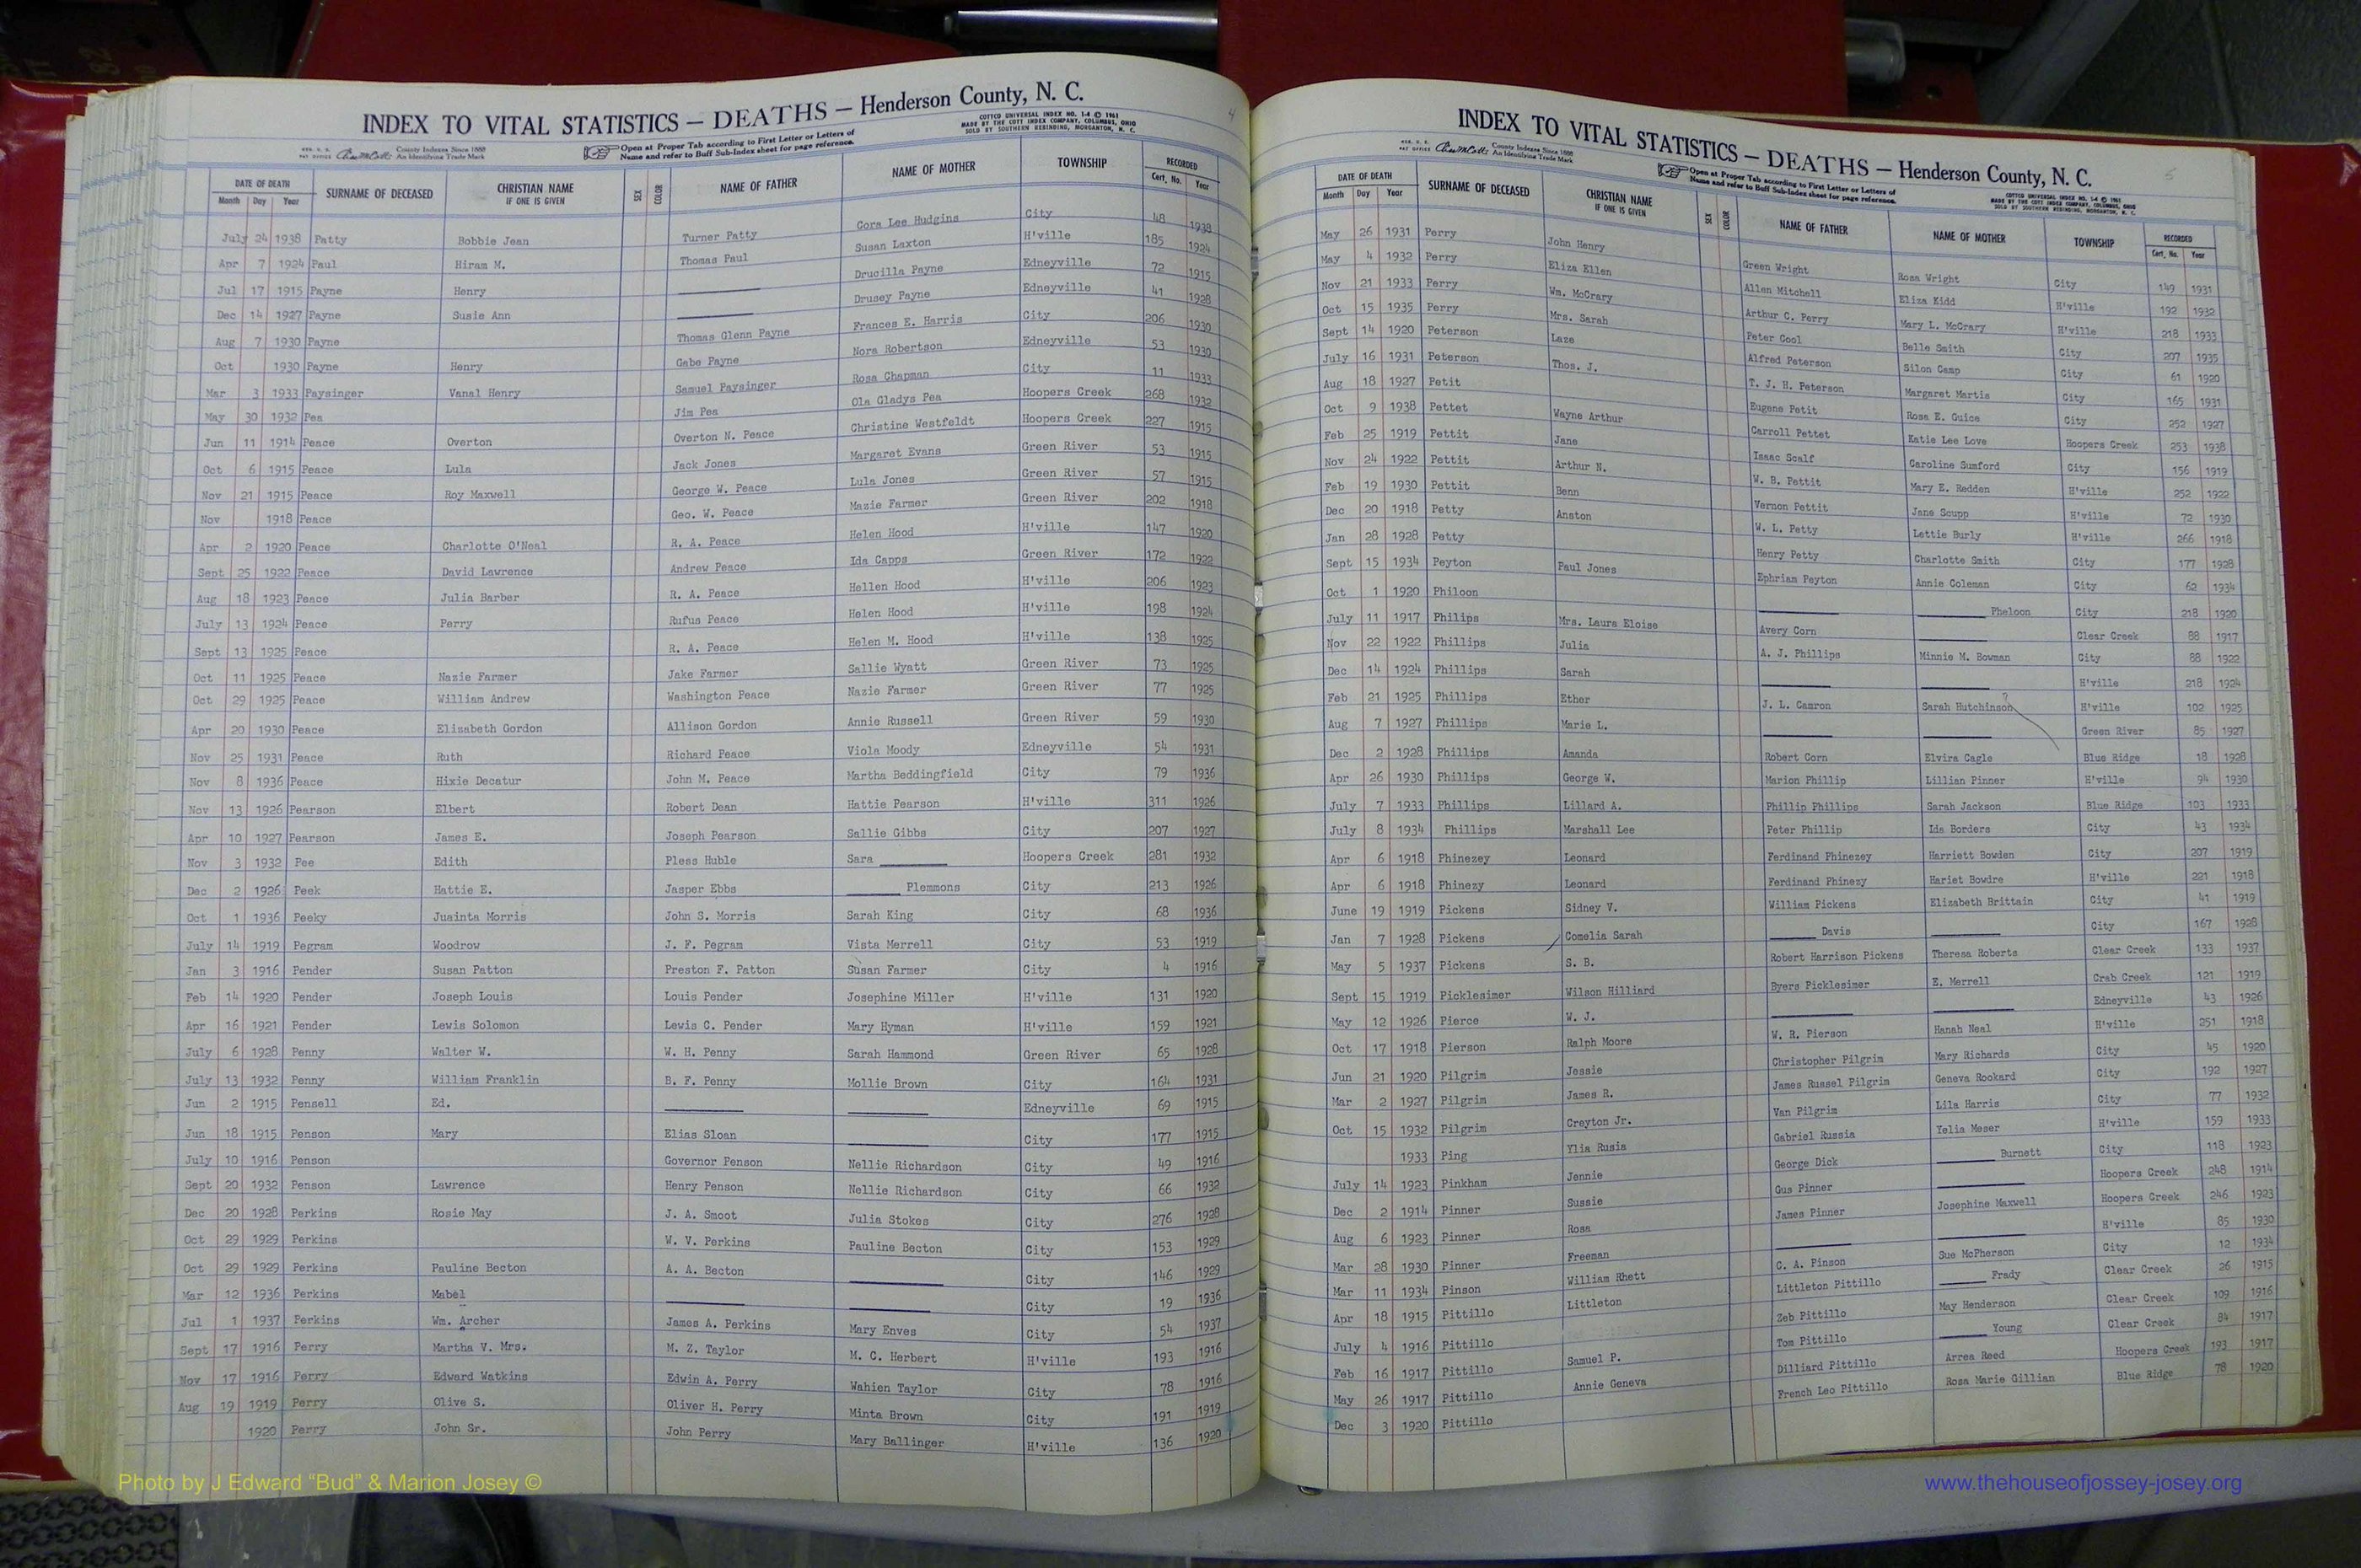 INDEX TO VITAL STATISTICS — DEATHS — Henderson County, N. C.
4
REG. U. S. PAT. OFFICE County Indexes Since 1888 An Identifying Trade Mark
Open at Proper Tab according to First Letter or Letters of Name and refer to Buff Sub-Index sheet for page reference.
COTTCO UNIVERSAL INDEX NO. 1-4 © 1961
MADE BY THE COTT INDEX COMPANY, COLUMBUS, OHIO
SOLD BY SOUTHERN REBINDING, MORGANTON, N. C.
DATE OF DEATH Month Day Year SURNAME OF DECEASED CHRISTIAN NAME IF ONE IS GIVEN SEX COLOR NAME OF FATHER NAME OF MOTHER TOWNSHIP RECORDED Cert. No. Year
July 24 1938 Patty Bobbie Jean Turner Patty Cora Lee Hudgins City 48 1938
Apr 7 1924 Paul Hiram M. Thomas Paul Susan Laxton H'ville 185 1924
Jul 17 1915 Payne Henry Drucilla Payne Edneyville 72 1915
Dec 14 1927 Payne Susie Ann Drusey Payne Edneyville 41 1928
Aug 7 1930 Payne Thomas Glenn Payne Frances E. Harris City 206 1930
Oct 1930 Payne Henry Gabe Payne Nora Robertson Edneyville 53 1930
Mar 3 1933 Paysinger Vanal Henry Samuel Paysinger Rosa Chapman City 11 1933
May 30 1932 Pea Jim Pea Ola Gladys Pea Hoopers Creek 268 1932
Jun 11 1914 Peace Overton Overton N. Peace Christine Westfeldt Hoopers Creek 227 1915
Oct 6 1915 Peace Lula Jack Jones Margaret Evans Green River 53 1915
Nov 21 1915 Peace Roy Maxwell George W. Peace Lula Jones Green River 57 1915
Nov 1918 Peace Geo. W. Peace Mazie Farmer Green River 202 1918
Apr 2 1920 Peace Charlotte O'Neal R. A. Peace Helen Hood H'ville 147 1920
Sept 25 1922 Peace David Lawrence Andrew Peace Ida Capps Green River 172 1922
Aug 18 1923 Peace Julia Barber R. A. Peace Hellen Hood H'ville 206 1923
July 13 1924 Peace Perry Rufus Peace Helen Hood H'ville 198 1924
Sept 13 1925 Peace R. A. Peace Helen M. Hood H'ville 138 1925
Oct 11 1925 Peace Nazie Farmer Jake Farmer Sallie Wyatt Green River 73 1925
Oct 29 1925 Peace William Andrew Washington Peace Nazie Farmer Green River 77 1925
Apr 20 1930 Peace Elizabeth Gordon Allison Gordon Annie Russell Green River 59 1930
Nov 25 1931 Peace Ruth Richard Peace Viola Moody Edneyville 54 1931
Nov 8 1936 Peace Hixie Decatur John M. Peace Martha Beddingfield City 79 1936
Nov 13 1926 Pearson Elbert Robert Dean Hattie Pearson H'ville 311 1926
Apr 10 1927 Pearson James E. Joseph Pearson Sallie Gibbs City 207 1927
Nov 3 1932 Pee Edith Pless Huble Sara Hoopers Creek 281 1932
Dec 2 1926 Peek Hattie E. Jasper Ebbs Plemmons City 213 1926
Oct 1 1936 Peeky Juainta Morris John S. Morris Sarah King City 68 1936
July 14 1919 Pegram Woodrow J. F. Pegram Vista Merrell City 53 1919
Jan 3 1916 Pender Susan Patton Preston F. Patton Susan Farmer City 4 1916
Feb 14 1920 Pender Joseph Louis Louis Pender Josephine Miller H'ville 131 1920
Apr 16 1921 Pender Lewis Solomon Lewis C. Pender Mary Hyman H'ville 159 1921
July 6 1928 Penny Walter W. W. H. Penny Sarah Hammond Green River 65 1928
July 13 1932 Penny William Franklin B. F. Penny Mollie Brown City 164 1931
Jun 2 1915 Pensell Ed. Edneyville 69 1915
Jun 18 1915 Penson Mary Elias Sloan City 177 1915
July 10 1916 Penson Governor Penson Nellie Richardson City 49 1916
Sept 20 1932 Penson Lawrence Henry Penson Nellie Richardson City 66 1932
Dec 20 1928 Perkins Rosie May J. A. Smoot Julia Stokes City 276 1928
Oct 29 1929 Perkins W. V. Perkins Pauline Becton City 153 1929
Oct 29 1929 Perkins Pauline Becton A. A. Becton City 146 1929
Mar 12 1936 Perkins Mabel City 19 1936
Jul 1 1937 Perkins Wm. Archer James A. Perkins Mary Enves City 54 1937
Sept 17 1916 Perry Martha V. Mrs. M. Z. Taylor M. C. Herbert H'ville 193 1916
Nov 17 1916 Perry Edward Watkins Edwin A. Perry Wahien Taylor City 78 1916
Aug 19 1919 Perry Olive S. Oliver H. Perry Minta Brown City 191 1919
1920 Perry John Sr. John Perry Mary Ballinger H'ville 136 1920
INDEX TO VITAL STATISTICS — DEATHS — Henderson County, N. C.
5
REG. U. S. PAT. OFFICE County Indexes Since 1888 An Identifying Trade Mark
Open at Proper Tab according to First Letter or Letters of Name and refer to Buff Sub-Index sheet for page reference.
COTTCO UNIVERSAL INDEX NO. 1-4 © 1961
MADE BY THE COTT INDEX COMPANY, COLUMBUS, OHIO
SOLD BY SOUTHERN REBINDING, MORGANTON, N. C.
DATE OF DEATH Month Day Year SURNAME OF DECEASED CHRISTIAN NAME IF ONE IS GIVEN SEX COLOR NAME OF FATHER NAME OF MOTHER TOWNSHIP RECORDED Cert. No. Year
May 26 1931 Perry John Henry Green Wright Rosa Wright City 149 1931
May 4 1932 Perry Eliza Ellen Allen Mitchell Eliza Kidd H'ville 192 1932
Nov 21 1933 Perry Wm. McCrary Arthur C. Perry Mary L. McCrary H'ville 218 1933
Oct 15 1935 Perry Mrs. Sarah Peter Cool Belle Smith City 207 1935
Sept 14 1920 Peterson Laze Alfred Peterson Silon Camp City 61 1920
July 16 1931 Peterson Thos. J. T. J. H. Peterson Margaret Martis City 165 1931
Aug 18 1927 Petit Eugene Petit Rosa E. Guice City 252 1927
Oct 9 1938 Pettet Wayne Arthur Carroll Pettet Katie Lee Love Hoopers Creek 253 1938
Feb 25 1919 Pettit Jane Isaac Scalf Caroline Sumford City 156 1919
Nov 24 1922 Pettit Arthur N. W. B. Pettit Mary E. Redden H'ville 252 1922
Feb 19 1930 Pettit Benn Vernon Pettit Jane Scupp H'ville 72 1930
Dec 20 1918 Petty Anston W. L. Petty Lettie Burly H'ville 266 1918
Jan 28 1928 Petty Henry Petty Charlotte Smith City 177 1928
Sept 15 1934 Peyton Paul Jones Ephriam Peyton Annie Coleman City 62 1934
Oct 1 1920 Philoon Pheloon City 218 1920
July 11 1917 Philips Mrs. Laura Eloise Avery Corn Clear Creek 88 1917
Nov 22 1922 Phillips Julia A. J. Phillips Minnie M. Bowman City 88 1922
Dec 14 1924 Phillips Sarah H'ville 218 1924
Feb 21 1925 Phillips Ether J. L. Camron Sarah Hutchinson ? H'ville 102 1925
Aug 7 1927 Phillips Marie L. Green River 85 1927
Dec 2 1928 Phillips Amanda Robert Corn Elvira Cagle Blue Ridge 18 1928
Apr 26 1930 Phillips George W. Marion Phillip Lillian Pinner H'ville 94 1930
July 7 1933 Phillips Lillard A. Phillip Phillips Sarah Jackson Blue Ridge 103 1933
July 8 1934 Phillips Marshall Lee Peter Phillip Ida Borders City 43 1934
Apr 6 1918 Phinezey Leonard Ferdinand Phinezey Harriett Bowden City 207 1919
Apr 6 1918 Phinezy Leonard Ferdinand Phinezy Hariet Bowdre H'ville 221 1918
June 19 1919 Pickens Sidney V. William Pickens Elizabeth Brittain City 41 1919
Jan 7 1928 Pickens Comelia Sarah Davis City 167 1928
May 5 1937 Pickens S. B. Robert Harrison Pickens Theresa Roberts Clear Creek 133 1937
Sept 15 1919 Picklesimer Wilson Hilliard Byers Picklesimer E. Merrell Crab Creek 121 1919
May 12 1926 Pierce W. J. Edneyville 43 1926
Oct 17 1918 Pierson Ralph Moore W. R. Pierson Hanah Neal H'ville 251 1918
Jun 21 1920 Pilgrim Jessie Christopher Pilgrim Mary Richards City 45 1920
Mar 2 1927 Pilgrim James R. James Russel Pilgrim Geneva Rookard City 192 1927
Oct 15 1932 Pilgrim Creyton Jr. Van Pilgrim Lila Harris City 77 1932
1933 Ping Ylia Rusia Gabriel Russia Yelia Meser H'ville 159 1933
July 14 1923 Pinkham Jennie George Dick Burnett City 118 1923
Dec 2 1914 Pinner Sussie Gus Pinner Hoopers Creek 248 1914
Aug 6 1923 Pinner Rosa James Pinner Josephine Maxwell Hoopers Creek 246 1923
Mar 28 1930 Pinner Freeman H'ville 85 1930
Mar 11 1934 Pinson William Rhett C. A. Pinson Sue McPherson City 12 1934
Apr 18 1915 Pittillo Littleton Littleton Pittillo Frady Clear Creek 26 1915
July 4 1916 Pittillo Zeb Pittillo May Henderson Clear Creek 109 1916
Feb 16 1917 Pittillo Samuel P. Tom Pittillo Young Clear Creek 84 1917
May 26 1917 Pittillo Annie Geneva Dilliard Pittillo Arrea Reed Hoopers Creek 193 1917
Dec 3 1920 Pittillo French Leo Pittillo Rosa Marie Gillian Blue Ridge 78 1920
Photo by J Edward “Bud” & Marion Josey ©
www.thehouseofjossey-josey.org